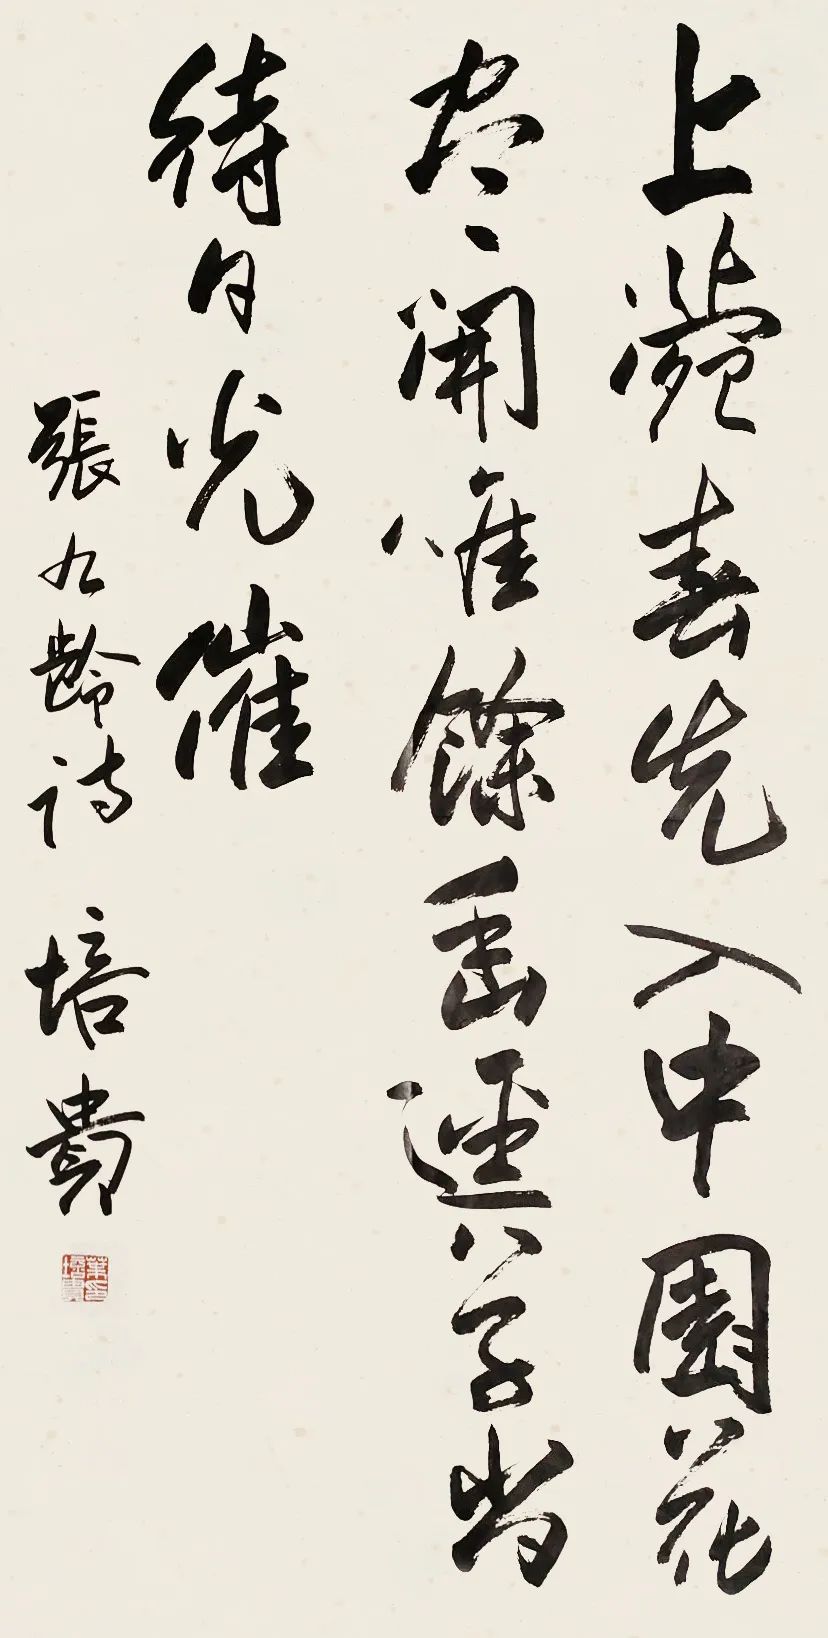 上苑春先入中園花
尽開唯餘幽逕草尚
待日光催
張九齡詩 培貴
葉印培貴